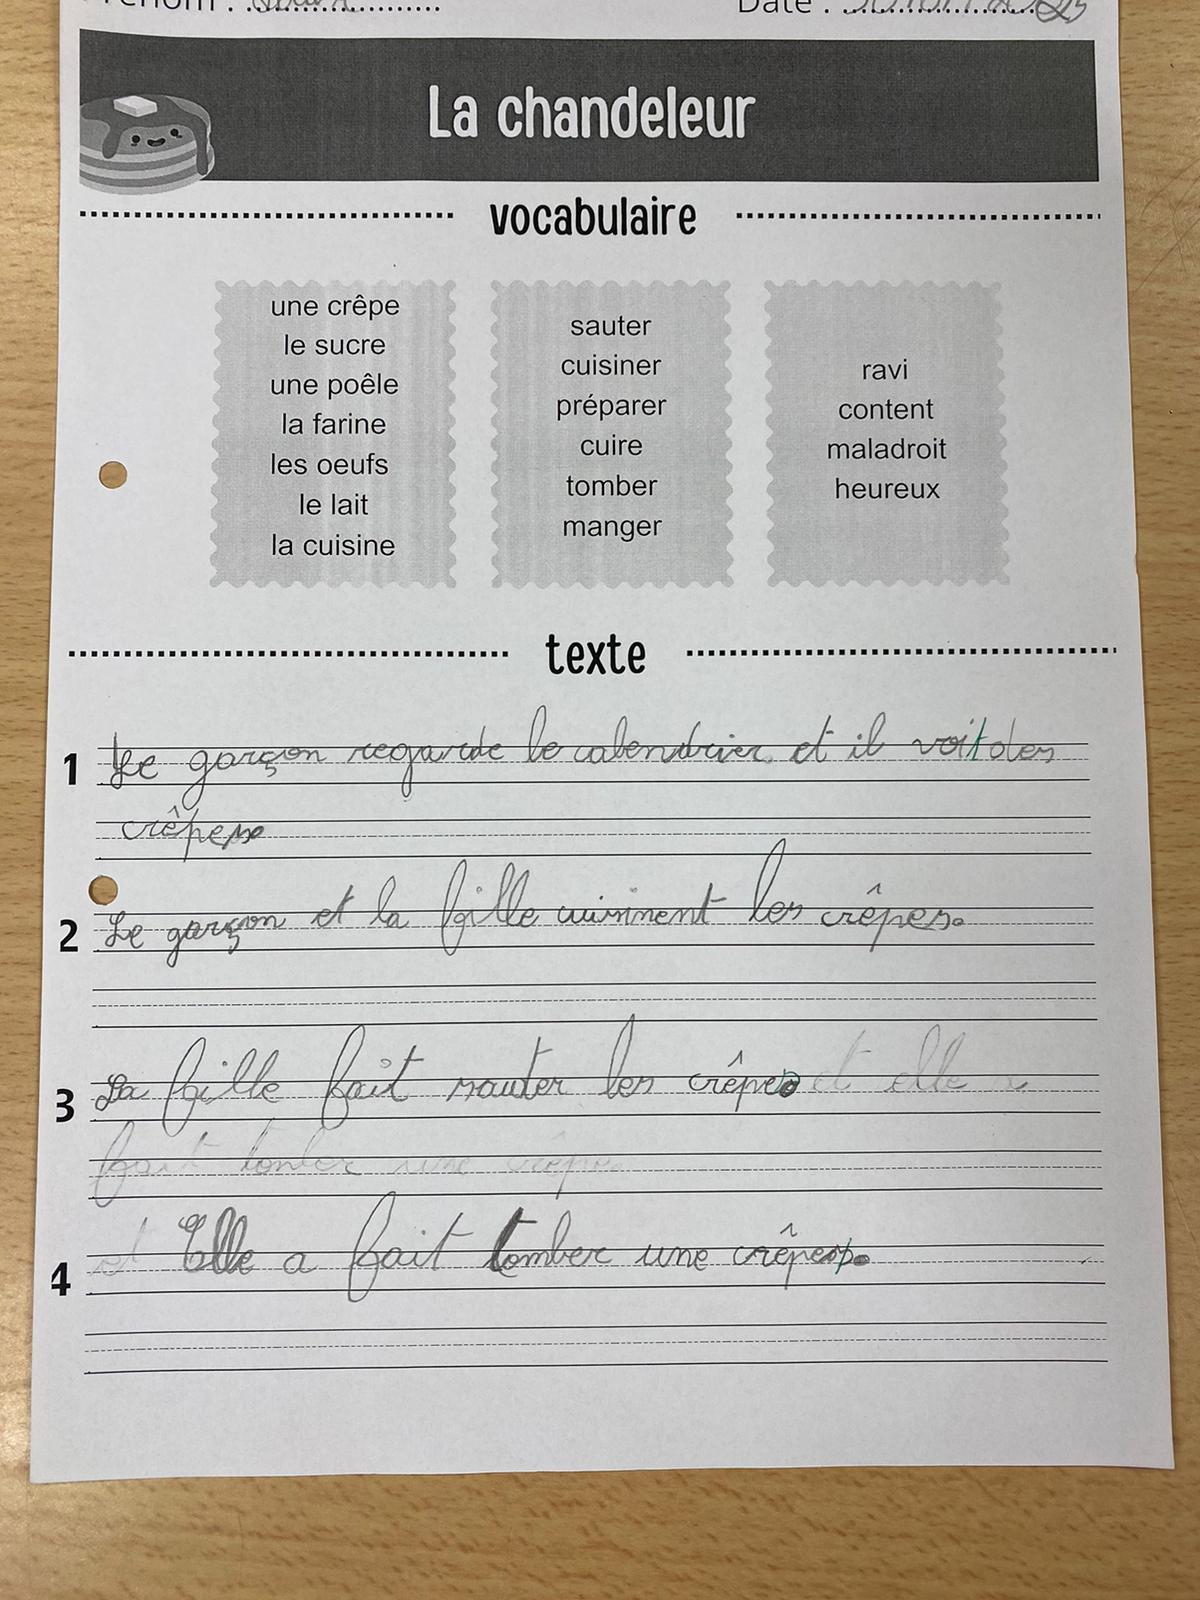 Prénom :
Date :
La chandeleur
vocabulaire
une crêpe
le sucre
une poêle
la farine
les oeufs
le lait
la cuisine
sauter
cuisiner
préparer
cuire
tomber
manger
ravi
content
maladroit
heureux
texte
1 Le garçon regarde le calendrier et il voit des
crêpes.
2 Le garçon et la fille cuisinent les crêpes.
3 La fille fait sauter les crêpes et elle a
fait tomber une crêpe
4 et Elle a fait tomber une crêpe.